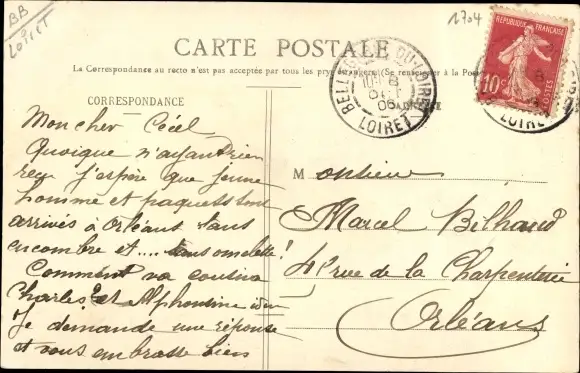 BB
LOIRET
1704
CARTE POSTALE
La Correspondance au recto n'est pas acceptée par tous les pays étrangers (Se renseigner à la Poste
RÉPUBLIQUE FRANÇAISE
10c
POSTES
BELLEGARDE-DU-LOIRET
8
06
LOIRET
CORRESPONDANCE
Mon cher Cécel
Quoique n'ayant rien
reçu j'espère que jeune
homme et paquets sont
arrivés à Orléans sans
encombre et .... sans omelette!
Comment va cousin
Charles et Alphonsine
Je demande une réponse
et vous embrasse bien
Monsieur
Marcel Bilhaud
4 rue de la Charpenterie
Orléans